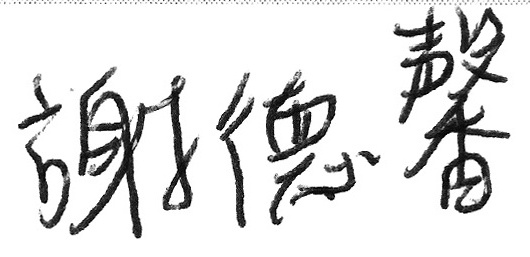 謝德馨